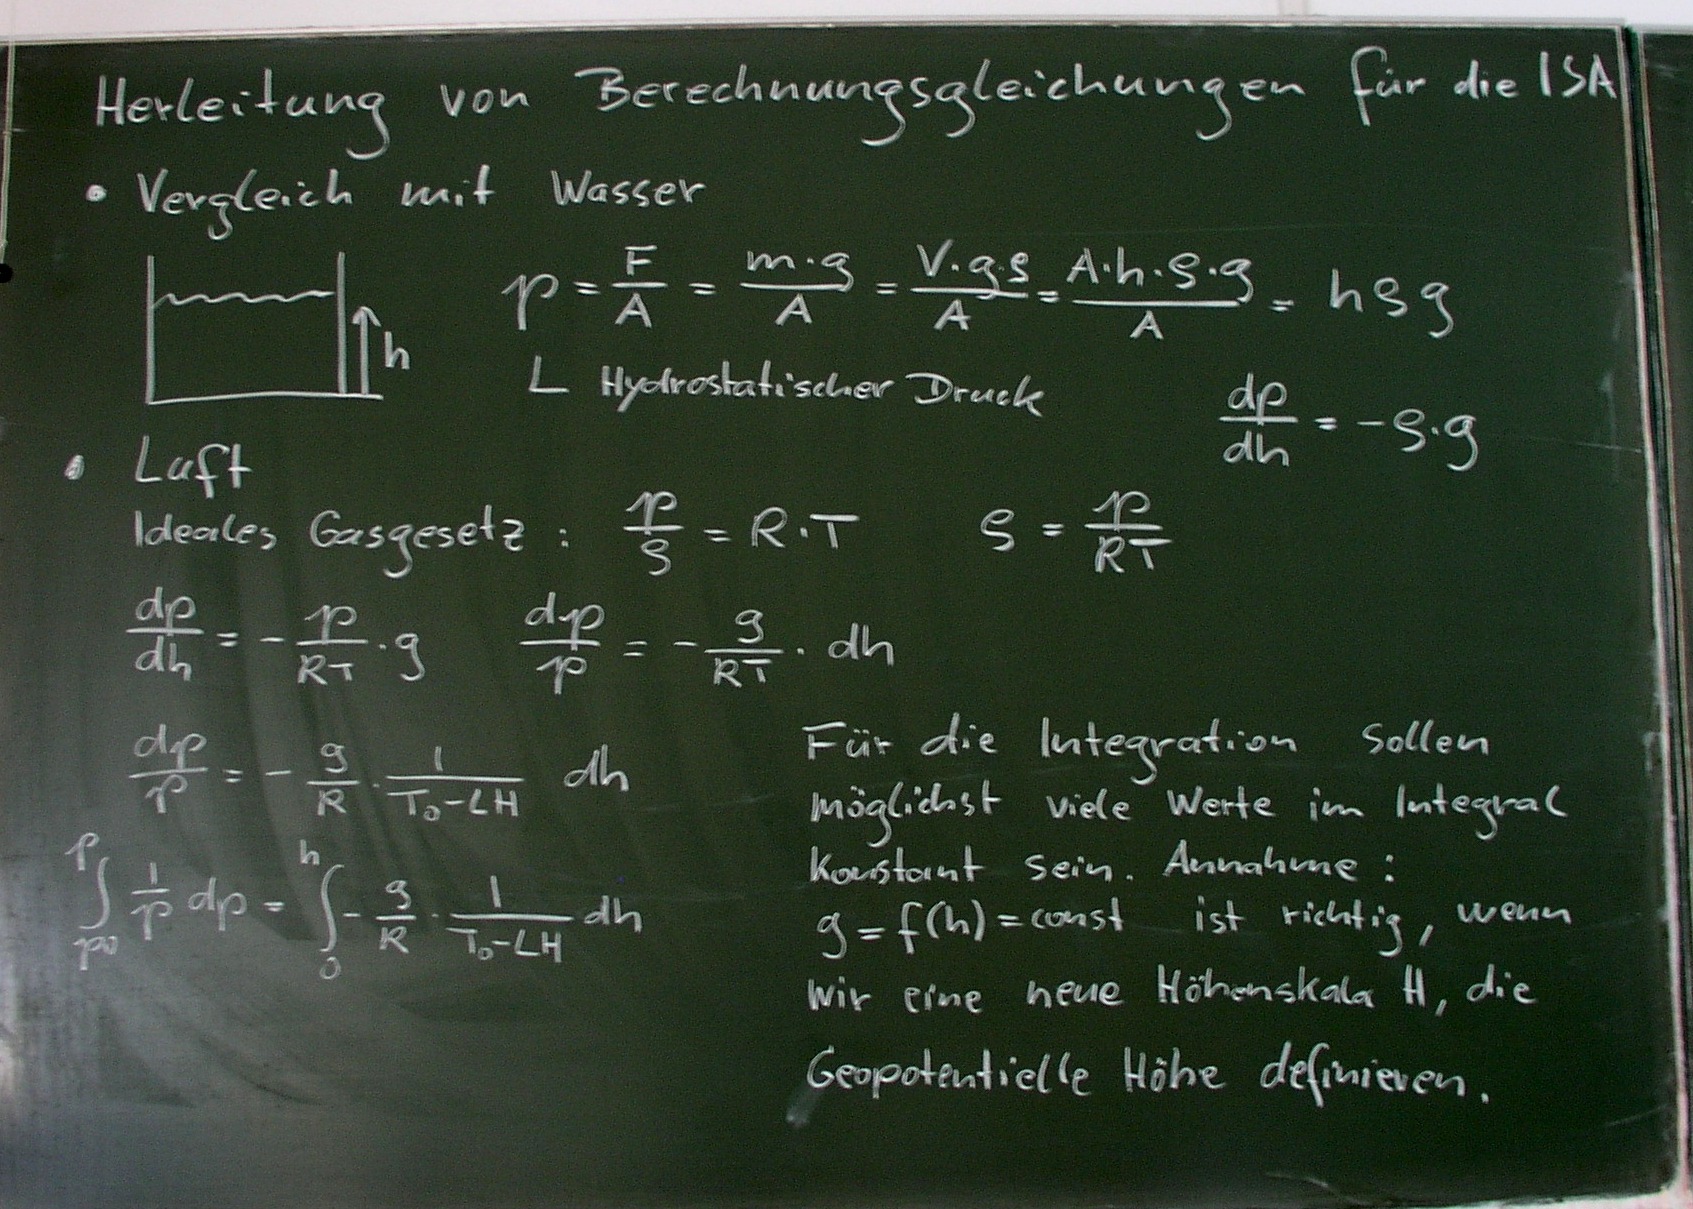 Herleitung von Berechnungsgleichungen für die ISA
• Vergleich mit Wasser
p = F/A = m·g/A = V·g·ρ/A = A·h·ρ·g/A = hρg
h
L Hydrostatischer Druck
dp/dh = -ρ·g
• Luft
Ideales Gasgesetz : p/ρ = R·T ρ = p/RT
dp/dh = - p/RT · g dp/p = - g/RT · dh
dp/p = - g/R · 1/T₀-LH dh
∫_p0^p 1/p dp = ∫_0^h - g/R · 1/T₀-LH dh
Für die Integration sollen
möglichst viele Werte im Integral
Konstant sein. Annahme :
g = f(h) = const ist richtig, wenn
wir eine neue Höhenskala H, die
Geopotentielle Höhe definieren.